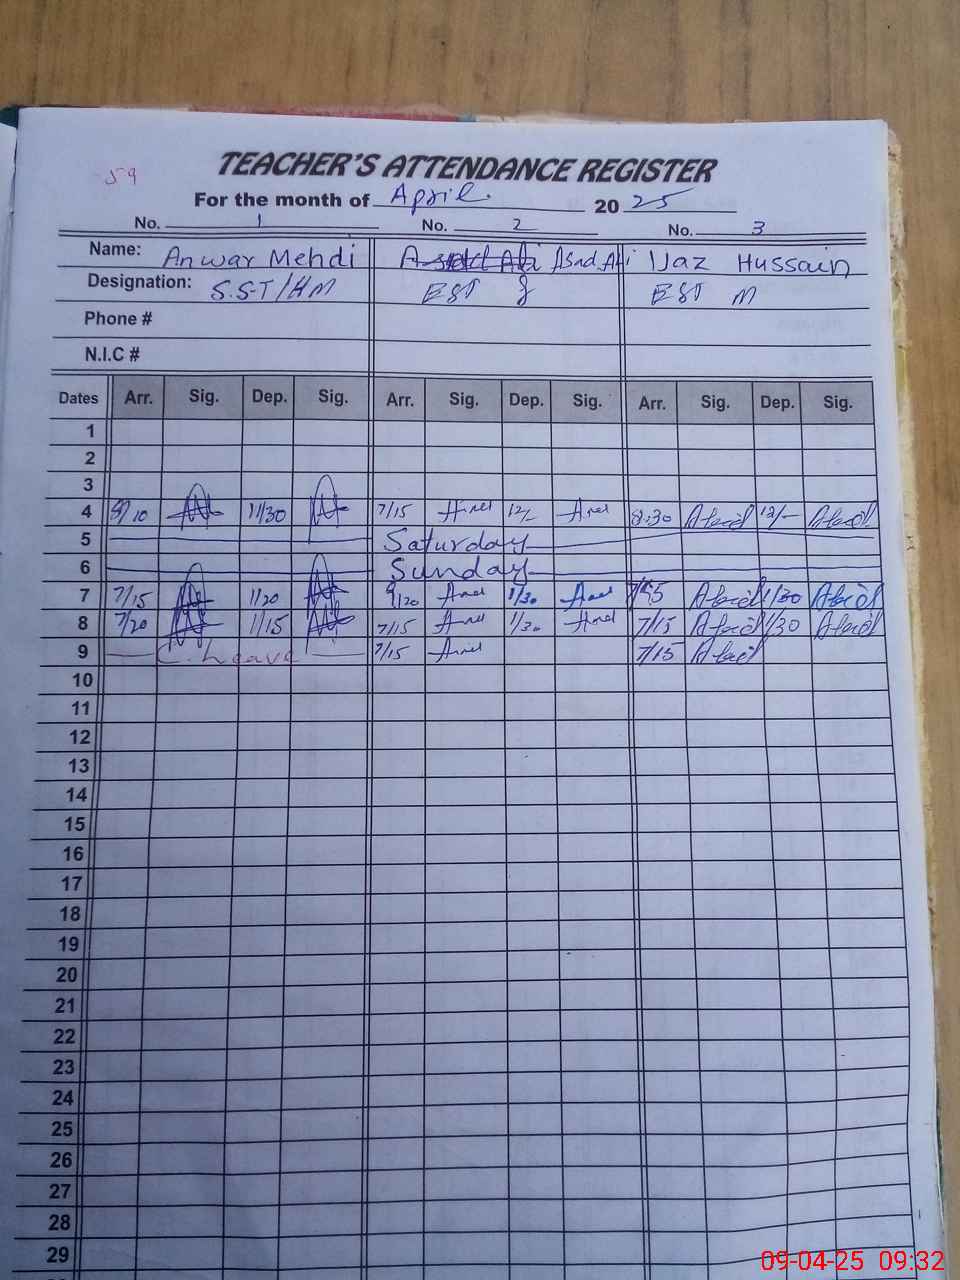 59
TEACHER'S ATTENDANCE REGISTER
For the month of April. 20 25
No. 1 No. 2 No. 3
Name: Anwar Mehdi Asad Ali Ijaz Hussain
Designation: S.S.T/HM EST EST M
Phone #
N.I.C #
Dates Arr. Sig. Dep. Sig. Arr. Sig. Dep. Sig. Arr. Sig. Dep. Sig.
1
2
3
4 8/10 11/30 7/15 12/- 8:30 12/-
5 Saturday
6 Sunday
7 7/15 1/20 1/30 1/30
8 7/20 1/15 7/15 1/30 7/15 1/30
9 C. Leave 7/15 7/15
10
11
12
13
14
15
16
17
18
19
20
21
22
23
24
25
26
27
28
29
09-04-25 09:32